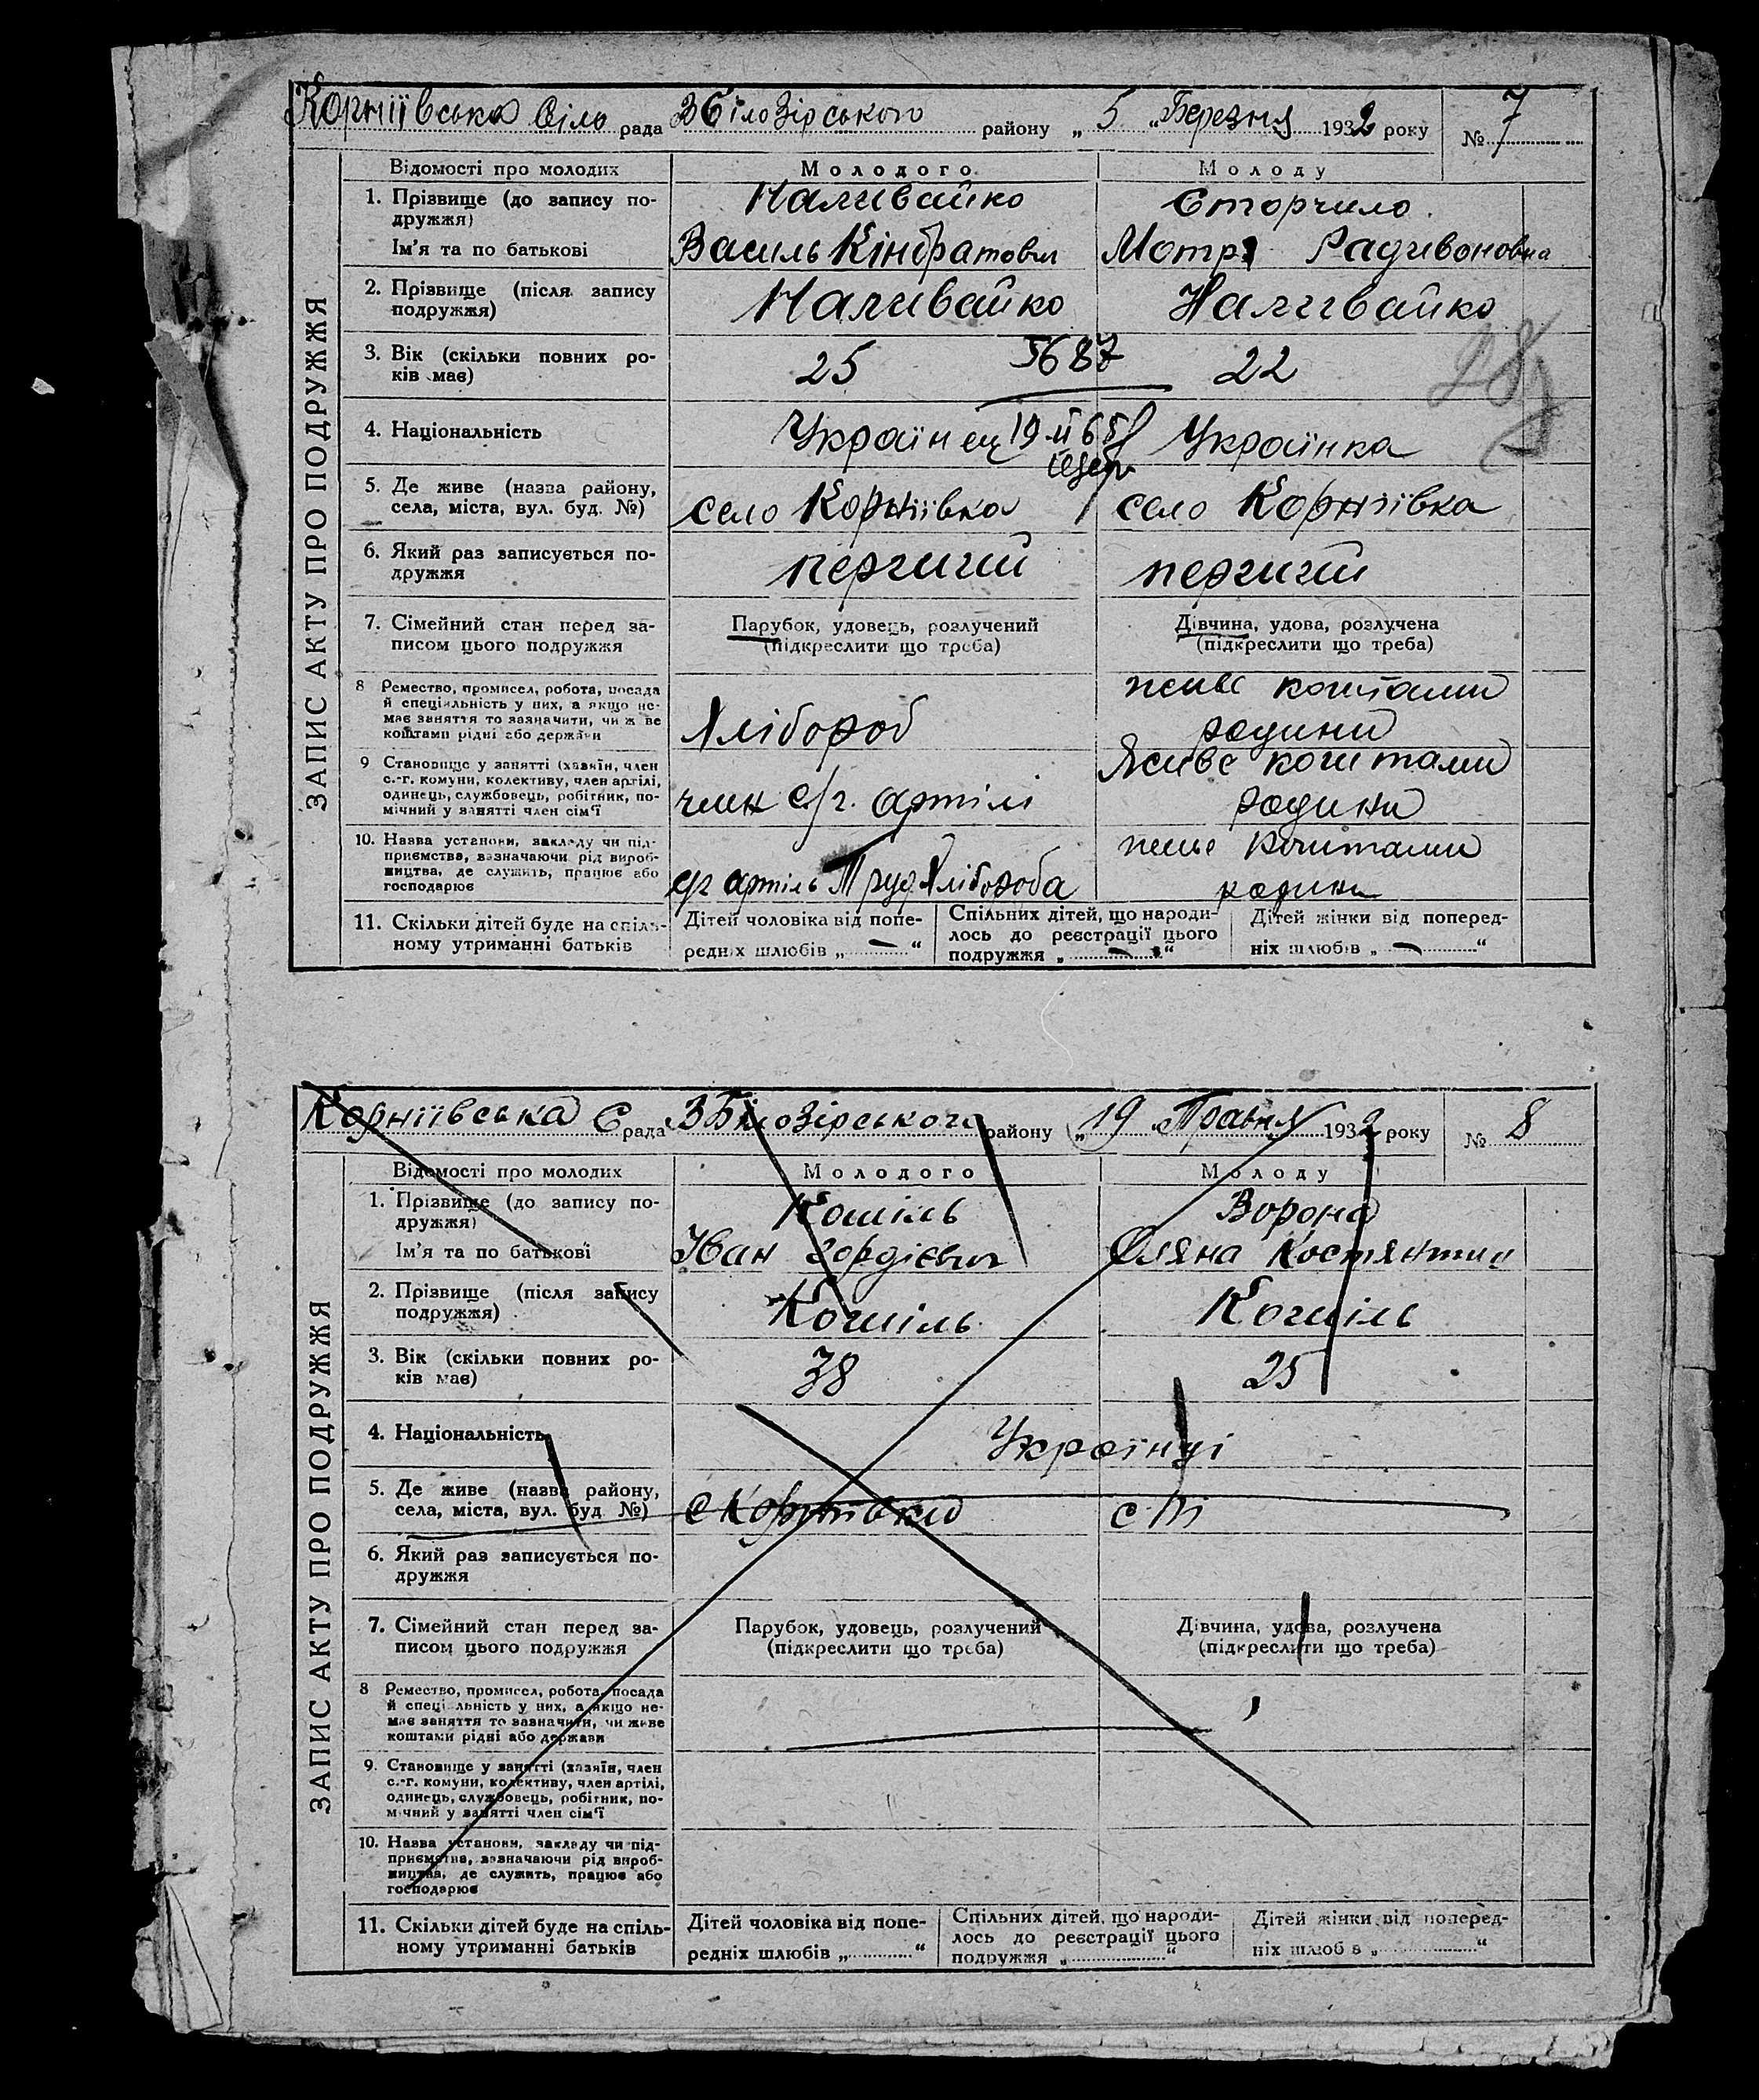 Корніївська Сіль рада ЗБілозірського району „ 5 „ Березня 1932 року № 7
ЗАПИС АКТУ ПРО ПОДРУЖЖЯ
Відомості про молодих Молодого Молоду
1. Прізвище (до запису по- Наливайко Сторчило
дружжя)
Ім'я та по батькові Василь Кіндратович Мотря Радивоновна
2. Прізвище (після запису Наливайко Наливайко
подружжя)
3. Вік (скільки повних ро- 25 22
ків має)
4. Національність Українец Українка
5. Де живе (назва району,
села, міста, вул. буд. №) село Корніївка село Корніївка
6. Який раз записується по- перший перший
дружжя
7. Сімейний стан перед за- Парубок, удовець, розлучений Дівчина, удова, розлучена
писом цього подружжя (підкреслити що треба) (підкреслити що треба)
8 Ремество, промисел, робота, посада живе коштами
й спеціяльність у них, а якщо не-
має заняття то зазначити, чи живе Хлібороб родини
коштами рідні або держави
9 Становище у занятті (хазяїн, член Живе коштами
с.-г. комуни, колективу, член артілі,
одинець, службовець, робітник, по- член с/г. артілі родини
мічний у занятті член сім'ї
10. Назва установи, закладу чи під- живе коштами
приємства, зазначаючи рід вироб-
ництва, де служить, працює або с/г артіль Труд Хлібороба родини
господарює
11. Скільки дітей буде на спіль- Дітей чоловіка від попе- Спільних дітей, що народи- Дітей жінки від поперед-
ному утриманні батьків редніх шлюбів „ — “ лось до реєстрації цього ніх шлюбів „ — “
подружжя „ — “
Корніївська С рада ЗБілозірського району „ 19 „ Травня 1932 року № 8
ЗАПИС АКТУ ПРО ПОДРУЖЖЯ
Відомості про молодих Молодого Молоду
1. Прізвище (до запису по- Кошіль Ворона
дружжя)
Ім'я та по батькові Іван Гордієвич Оляна Костянтин
2. Прізвище (після запису Кошіль Кошіль
подружжя)
3. Вік (скільки повних ро- 38 25
ків має)
4. Національність Українці
5. Де живе (назва району,
села, міста, вул. буд №) с
6. Який раз записується по-
дружжя
7. Сімейний стан перед за- Парубок, удовець, розлучений Дівчина, удова, розлучена
писом цього подружжя (підкреслити що треба) (підкреслити що треба)
8 Ремество, промисел, робота, посада
й спеціяльність у них, а якщо не-
має заняття то зазначити, чи живе
коштами рідні або держави
9. Становище у занятті (хазяїн, член
с.-г. комуни, колективу, член артілі,
одинець, службовець, робітник, по-
мічний у занятті член сім'ї
10. Назва установи, закладу чи під-
приємства, зазначаючи рід вироб-
ництва, де служить, працює або
господарює
11. Скільки дітей буде на спіль- Дітей чоловіка від попе- Спільних дітей, що народи- Дітей жінки від поперед-
ному утриманні батьків редніх шлюбів „ “ лось до реєстрації цього ніх шлюбів „ “
подружжя „ “